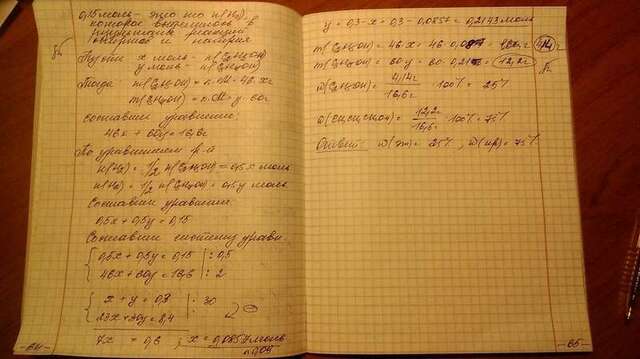 0,15 моль - это то n(H₂),
которое выделилось в
реакции
и натрия
Пусть x моль - n(C₂H₅OH)
y моль - n(C₃H₇OH)
Тогда m(C₂H₅OH) = n·M = 46x г
m(C₃H₇OH) = n·M = y·60г
составим уравнение:
46x + 60y = 16,6г
По уравнениям р-й
n(H₂) = 1/2 n(C₂H₅OH) = 0,5x моль
n(H₂) = 1/2 n(C₃H₇OH) = 0,5y моль
Составим уравнение
0,5x + 0,5y = 0,15
Составим систему уравн.
0,5x + 0,5y = 0,15 | : 0,5
46x + 60y = 16,6 | : 2
x + y = 0,3 | · 30
7x = 0,6 ; x = 0,0857 моль
- 64 -
y = 0,3 - x = 0,3 - 0,0857 = 0,2143 моль
m(C₂H₅OH) = 46x = 46·0,09 = 4,14г
m(C₃H₇OH) = 60y = 60· = 12,2г
ω(C₂H₅OH) = 4,14г / 16,6г · 100% = 25%
ω(CH₃CH₂CH₂OH) = 12,2г / 16,6г · 100% = 75%
Ответ: ω(эт) = 25% , ω(пр) = 75%
- 65 -